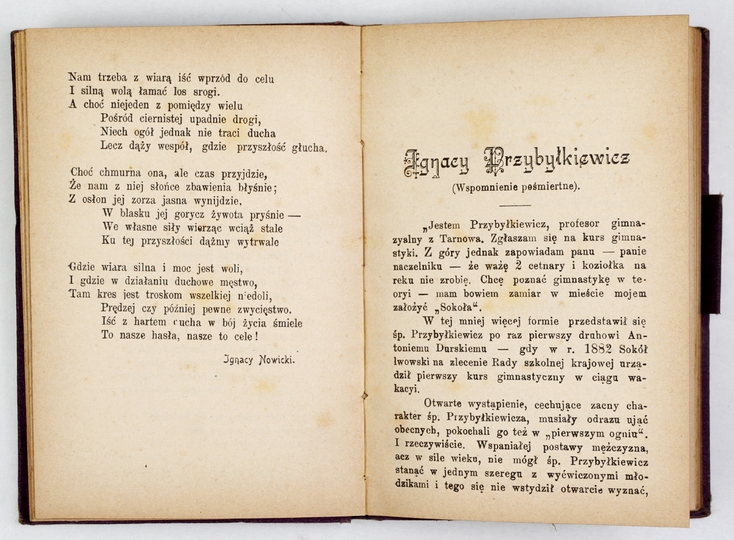 Nam trzeba z wiarą iść wprzód do celu
I silną wolą łamać los srogi.
A choć niejeden z pomiędzy wielu
Pośród ciernistej upadnie drogi,
Niech ogół jednak nie traci ducha
Lecz dąży wespół, gdzie przyszłość głucha.
Choć chmurna ona, ale czas przyjdzie,
Że nam z niej słońce zbawienia błyśnie;
Z osłon jej zorza jasna wynijdzie.
W blasku jej gorycz żywota pryśnie —
We własne siły wierząc wciąż stale
Ku tej przyszłości dążmy wytrwale
Gdzie wiara silna i moc jest woli,
I gdzie w działaniu duchowe męstwo,
Tam kres jest troskom wszelkiej niedoli,
Prędzej czy później pewne zwycięstwo.
Iść z hartem ducha w bój życia śmiele
To nasze hasła, nasze to cele!
Ignacy Nowicki.
Ignacy Przybyłkiewicz
(Wspomnienie pośmiertne).
„Jestem Przybyłkiewicz, profesor gimna-
zyalny z Tarnowa. Zgłaszam się na kurs gimna-
styki. Z góry jednak zapowiadam panu — panie
naczelniku — że ważę 2 cetnary i koziołka na
reku nie zrobię. Chcę poznać gimnastykę w te-
oryi — mam bowiem zamiar w mieście mojem
założyć „Sokoła“.
W tej mniej więcej formie przedstawił się
śp. Przybyłkiewicz po raz pierwszy druhowi An-
toniemu Durskiemu — gdy w r. 1882 Sokół
lwowski na zlecenie Rady szkolnej krajowej urzą-
dził pierwszy kurs gimnastyczny w ciągu wa-
kacyi.
Otwarte wystąpienie, cechujące zacny cha-
rakter śp. Przybyłkiewicza, musiały odrazu ująć
obecnych, pokochali go też w „pierwszym ogniu“.
I rzeczywiście. Wspaniałej postawy mężczyzna,
acz w sile wieku, nie mógł śp. Przybyłkiewicz
stanąć w jednym szeregu z wyćwiczonymi mło-
dzikami i tego się nie wstydził otwarcie wyznać,